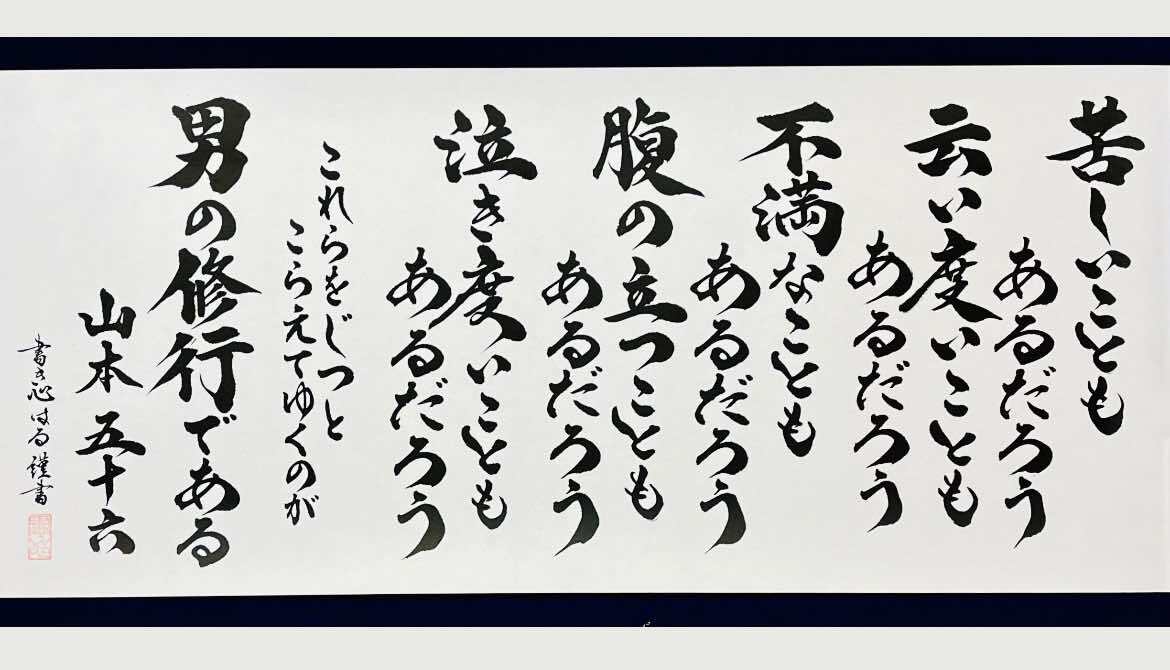 苦しいことも
あるだろう
云い度いことも
あるだろう
不満なことも
あるだろう
腹の立つことも
あるだろう
泣き度いことも
あるだろう
これらをじつと
こらえてゆくのが
男の修行である
山本五十六
謹書